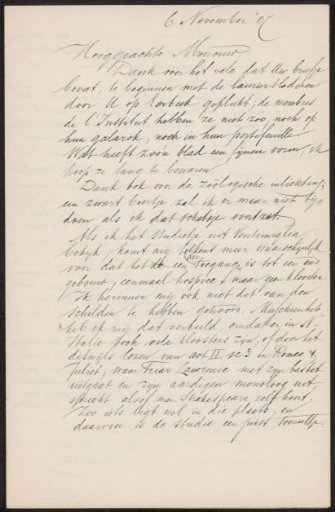 6 November '07
Hooggeachte Mevrouw,
Dank voor het vele dat Uw briefje
bevat, te beginnen met de laurierbladeren
door U op geplukt; de membres
de l'Institut hebben ze niet zoo, noch op
hun galarok, noch in hun portefeuille
Wat heeft zoo'n blad een fijnen vorm, ik
hoop ze lang te bewaren
Dank ook voor de zoölogische inlichting;
een zwart beertje zal ik er maar niet bij
doen als ik dat schetsje voortzet
Als ik het studietje uit Ventimiglia
bekijk, komt mij telkens meer waarschijnlijk
voor dat het de een toegang is tot een oud
gebouw, eenmaal hospice, maar geen klooster.
Ik herinner mij ook niet dit van den
schilder te hebben gehoord. Misschien heb
ik mij dat verbeeld, omdat er in
Italie toch vele kloosters zijn, of door het
dikwijls lezen van act II sc 3 in Romeo &
Juliet, waar Friar Lawrence met zijn
uitgaat en zijn aardigen monoloog uit,
spreekt alsof men Shakespeare zelf hoort.
Zoo iets ligt wel in die plaats, en
daarvan is de studie een juist tooneeltje